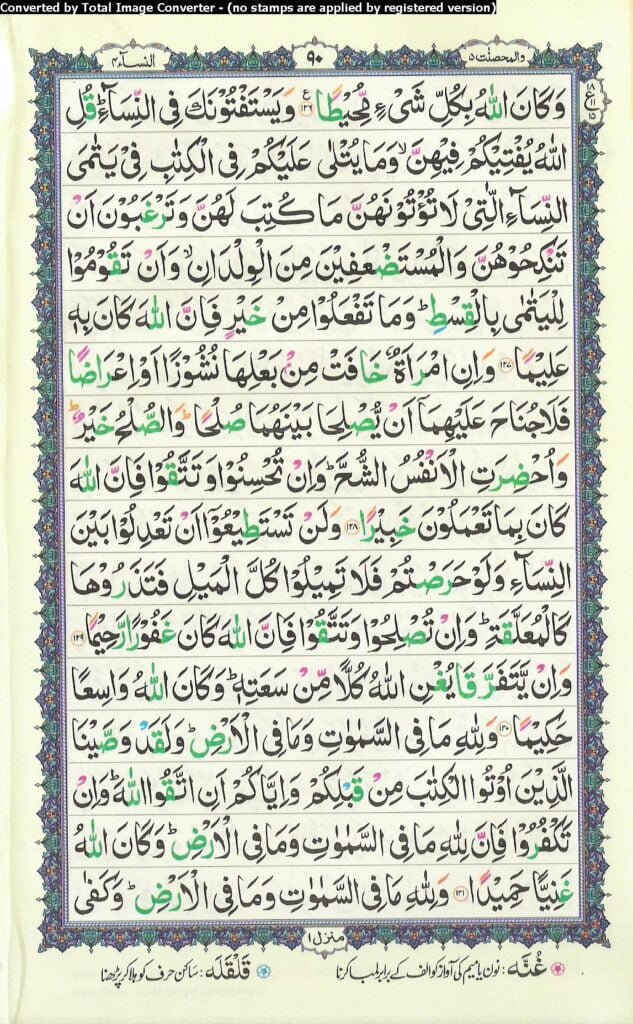 Converted by Total Image Converter - (no stamps are applied by registered version)
والمحصنت ٥ ٩٠ النسآء ٤
وَكَانَ اللّٰهُ بِكُلِّ شَیْءٍ مُّحِیْطًا ۝١٢٦ وَیَسْتَفْتُوْنَكَ فِی النِّسَآءِؕ قُلِ
١٨
ع
١١
١٥
اللّٰهُ یُفْتِیْكُمْ فِیْهِنَّۙ وَمَا یُتْلٰی عَلَیْكُمْ فِی الْكِتٰبِ فِیْ یَتٰمَی
النِّسَآءِ الّٰتِیْ لَا تُؤْتُوْنَهُنَّ مَا كُتِبَ لَهُنَّ وَتَرْغَبُوْنَ اَنْ
تَنْكِحُوْهُنَّ وَالْمُسْتَضْعَفِیْنَ مِنَ الْوِلْدَانِۙ وَاَنْ تَقُوْمُوْا
لِلْیَتٰمٰی بِالْقِسْطِؕ وَمَا تَفْعَلُوْا مِنْ خَیْرٍ فَاِنَّ اللّٰهَ كَانَ بِهٖ
عَلِیْمًا ۝١٢٧ وَاِنِ امْرَاَةٌ خَافَتْ مِنْۢ بَعْلِهَا نُشُوْزًا اَوْ اِعْرَاضًا
فَلَا جُنَاحَ عَلَیْهِمَاۤ اَنْ یُّصْلِحَا بَیْنَهُمَا صُلْحًاؕ وَالصُّلْحُ خَیْرٌؕ
وَاُحْضِرَتِ الْاَنْفُسُ الشُّحَّؕ وَاِنْ تُحْسِنُوْا وَتَتَّقُوْا فَاِنَّ اللّٰهَ
كَانَ بِمَا تَعْمَلُوْنَ خَبِیْرًا ۝١٢٨ وَلَنْ تَسْتَطِیْعُوْۤا اَنْ تَعْدِلُوْا بَیْنَ
النِّسَآءِ وَلَوْ حَرَصْتُمْ فَلَا تَمِیْلُوْا كُلَّ الْمَیْلِ فَتَذَرُوْهَا
كَالْمُعَلَّقَةِؕ وَاِنْ تُصْلِحُوْا وَتَتَّقُوْا فَاِنَّ اللّٰهَ كَانَ غَفُوْرًا رَّحِیْمًا ۝١٢٩
وَاِنْ یَّتَفَرَّقَا یُغْنِ اللّٰهُ كُلًّا مِّنْ سَعَتِهٖؕ وَكَانَ اللّٰهُ وَاسِعًا
حَكِیْمًا ۝١٣٠ وَلِلّٰهِ مَا فِی السَّمٰوٰتِ وَمَا فِی الْاَرْضِؕ وَلَقَدْ وَصَّیْنَا
الَّذِیْنَ اُوْتُوا الْكِتٰبَ مِنْ قَبْلِكُمْ وَاِیَّاكُمْ اَنِ اتَّقُوا اللّٰهَؕ وَاِنْ
تَكْفُرُوْا فَاِنَّ لِلّٰهِ مَا فِی السَّمٰوٰتِ وَمَا فِی الْاَرْضِؕ وَكَانَ اللّٰهُ
غَنِیًّا حَمِیْدًا ۝١٣١ وَلِلّٰهِ مَا فِی السَّمٰوٰتِ وَمَا فِی الْاَرْضِؕ وَكَفٰی
منزل ١
غُنَّہ : نون یا میم کی آواز کو الف کے برابر لمبا کرنا قَلْقَلَہ : ساکن حرف کو ہلا کر پڑھنا